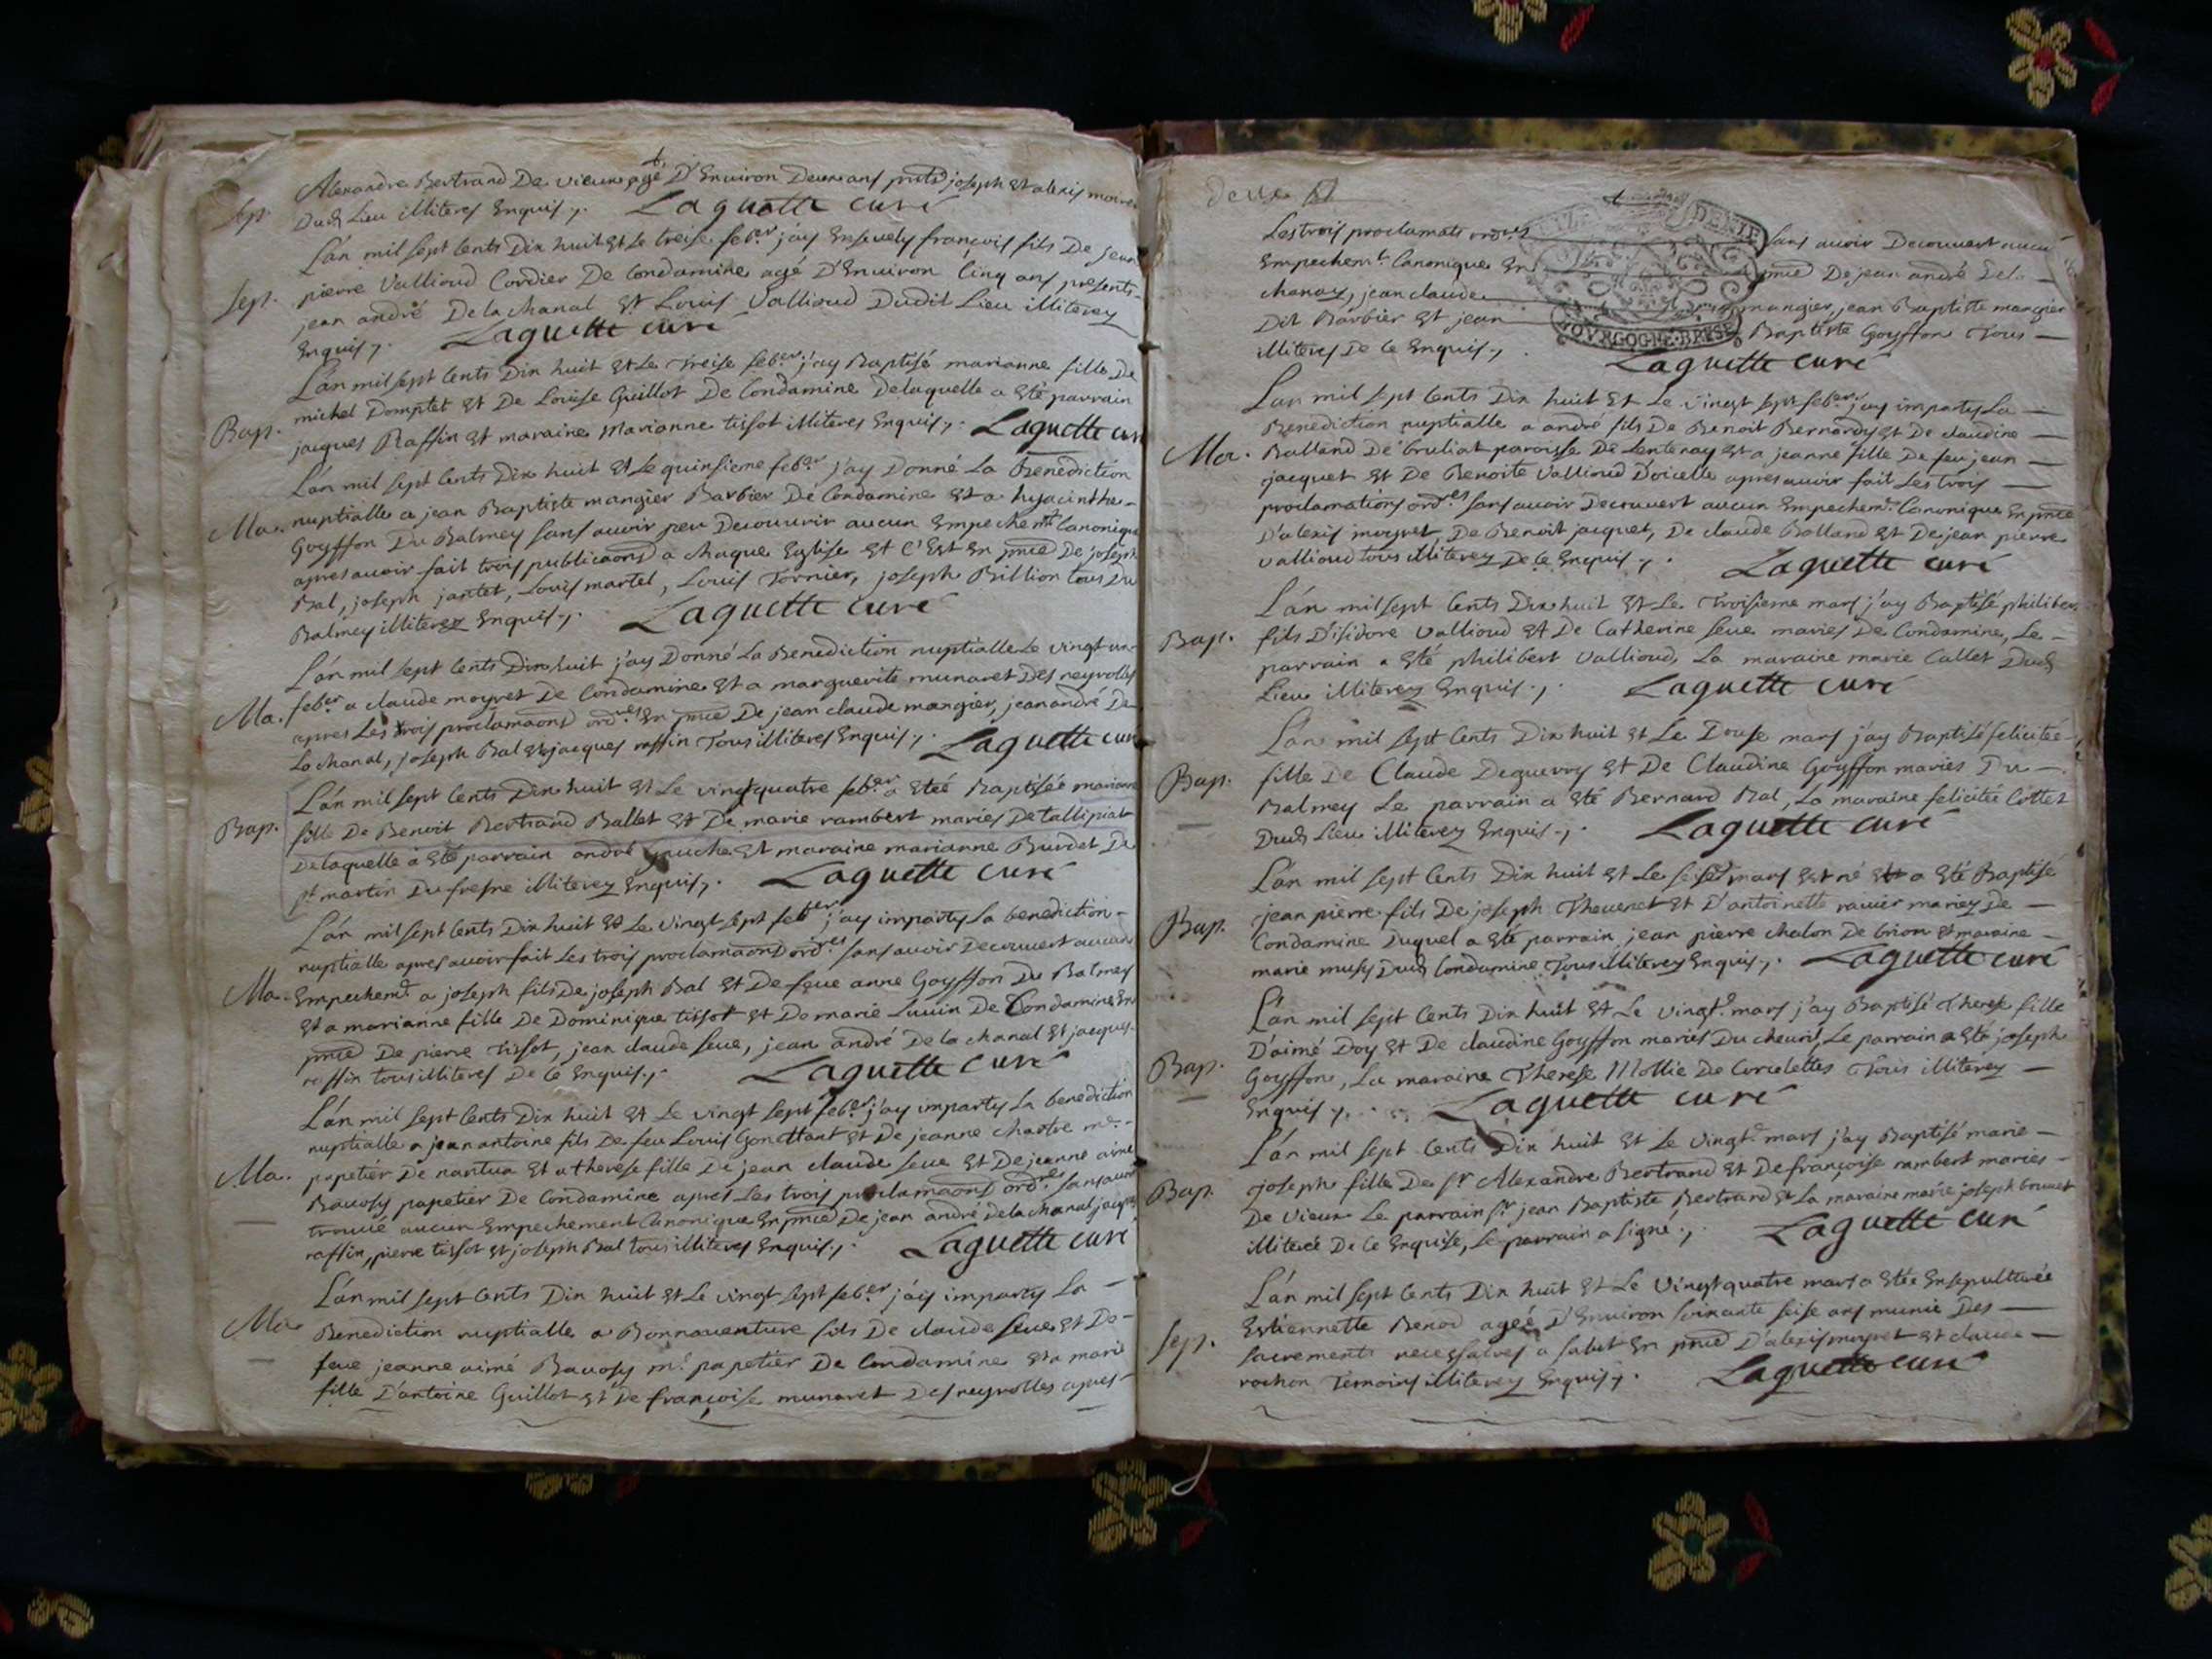 Alexandre Bertrand De vieux agé D'Environ Deux ans pnts joseph Et alexis moiret
Sep. Dud Lieu illiteres Enquis.
Laguette curé
L'an mil sept Cents Dix huit Et Le treise feber j'ay Ensevely françois fils De jean
Sep. pierre Vallioud Cordier De Condamine agé D'Environ Cinq ans presents
jean andré De la chanal Et Louis Vallioud Dudit Lieu illiterez
Enquis. Laguette curé
L'an mil sept Cents Dix huit Et Le Treise feber j'ay Baptisé marianne fille De
michel Domptet Et De Louise Guillot De Condamine De laquelle a Eté parrain
Bap. jacques Raffin Et maraine Marianne tissot illiteres Enquis. Laguette curé
L'an mil sept Cents Dix huit Et Le quinsieme feber j'ay Donné La Benediction
Ma. nuptialle a jean Baptiste mangier Barbier De Condamine Et a hyacinthe
Goyffon Du Balmey sans avoir peu Decouvrir aucun Empechemt Canonique
apres avoir fait trois publicaons a chaque Eglise Et C'Est En pnce De joseph
Bal, joseph jantet, Louis martel, Louis Tornier, joseph Billion tous Du
Balmey illiterez Enquis. Laguette curé
L'an mil sept Cents Dix huit j'ay Donné La Benediction nuptialle Le vingt un
Ma. feber a claude moyret De Condamine Et a marguerite munaret Des neyrolles
apres Les trois proclamaons ordres En pnce De jean claude mangier, jean andré De
La chanal, joseph Bal Et jacques raffin Tous illiteres Enquis. Laguette curé
L'an mil sept Cents Dix huit Et Le vingt quatre feber a Eteé Baptisée marianne
Bap. fille De Benoit Bertrand Ballet Et De marie rambert mariés De tallipiat
De laquelle a Eté parrain andré gauche Et maraine marianne Burdet De
st martin Du fresne illiterez Enquis. Laguette curé
L'an mil sept Cents Dix huit Et Le vingt sept feber j'ay imparty la benediction
nuptialle apres avoir fait Les trois proclamaons ordres sans avoir Decouvert aucun
Ma. Empechemt a joseph fils De joseph Bal Et De feue anne Goyffon Du Balmey
Et a marianne fille De Dominique tissot Et De marie Luuin De Condamine En
pnce De pierre Tissot, jean claude seue, jean andré De la chanal Et jacques
raffin tous illiteres De Ce Enquis. Laguette curé
L'an mil sept Cents Dix huit Et Le vingt sept feber j'ay imparty La benediction
nuptialle a jean antoine fils De feu Louis Gonttant Et De jeanne chastre me
Ma. papetier De nantua Et a therese fille De jean claude seue Et De jeanne aimé
Bavosy papetier De Condamine apres Les trois proclamaons ordres sans avoir
trouué aucun Empechement Canonique En pnce De jean andré De la chanal jacques
raffin, pierre tissot Et joseph Bal tous illiteres Enquis. Laguette curé
L'an mil sept Cents Dix huit Et Le vingt sept feber j'ay imparty La
Ma. Benediction nuptialle a Bonnaventure fils De claude seue Et De
feue jeanne aimé Bavosy me papetier De Condamine Et a marie
fille D'antoine Guillot Et De françoise munaret Des neyrolles apres
deux
Les trois proclamats ordres sans avoir Decouvert aucun
Empechemt Canonique En pnce De jean andré De la
chanay, jean claude mangier, jean Baptiste mangier
Dit Barbier Et jean Baptiste Goyffon Tous
illiteres De Ce Enquis.
BOVRGOGNE·BRESSE
Laguette curé
L'an mil sept Cents Dix huit Et Le vingt sept feber j'ay imparty La
Benediction nuptialle a andré fils De Benoit Bernardy Et De claudine
Ma. Balland De bruliat paroisse De Lentenay Et a jeanne fille De feu jean
jacquet Et De Benoite Vallioud D'oicelle apres avoir fait Les trois
proclamations ordres sans avoir Decouvert aucun Empechemt Canonique En pnce
D'alexis moyret, De Benoit jacquet, De claude Bolland Et De jean pierre
Vallioud tous illiterez De Ce Enquis. Laguette curé
L'an mil sept Cents Dix huit Et Le Troisieme mars j'ay Baptisé philibert
Bap. fils D'isidore Vallioud Et De Catherine seue mariés De Condamine, Le
parrain a Eté philibert Vallioud, La maraine marie Callet Dud
Lieu illiterez Enquis. Laguette curé
L'an mil sept Cents Dix huit Et Le Douse mars j'ay Baptisé felicitée
Bap. fille De Claude Deguerry Et De Claudine Goyffon mariés Du
Balmey Le parrain a Eté Bernard Bal, La maraine felicitée Cottet
Dud Lieu illiterez Enquis. Laguette curé
L'an mil sept Cents Dix huit Et Le seise mars Est né Et a Eté Baptisé
Bap. jean pierre fils De joseph Thevenet Et D'antoinette rauier mariez De
Condamine Duquel a Eté parrain jean pierre chalon De brion Et maraine
marie musy Dud Condamine Tous illiterez Enquis. Laguette curé
L'an mil sept Cents Dix huit Et Le vingte mars j'ay Baptisé Therese fille
D'aimé Doy Et De claudine Goyffon mariés Du cheuril, Le parrain a Eté joseph
Bap. Goyffon, La maraine Therese Mollie De Corcelettes Tous illiterez
Enquis. Laguette curé
L'an mil sept Cents Dix huit Et Le vingte mars j'ay Baptisé marie
Bap. joseph fille De sr Alexandre Bertrand Et De françoise rambert mariés
De Vieux Le parrain sr jean Baptiste Bertrand Et La maraine marie joseph brunet
illiterée De Ce Enquise, Le parrain a signé. Laguette curé
L'an mil sept Cents Dix huit Et Le Vingt quatre mars a Etée Ensepulturée
Estiennette Benod ageé D'Environ soixante seise ans munie Des
Sep. sacrements necessaires a salut En pnce D'alexis moyret Et claude
rochon Temoins illiterez Enquis. Laguette curé